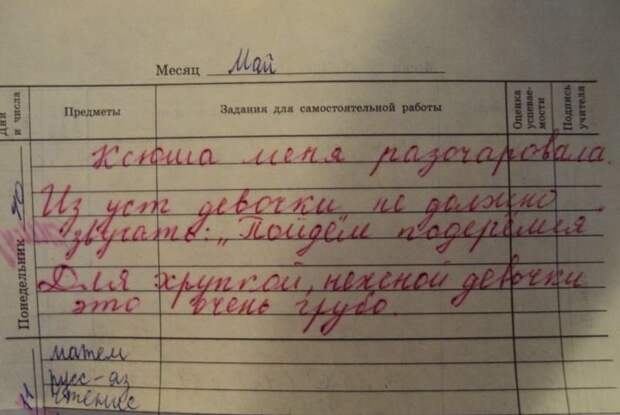 Месяц Май
Дни и числа Предметы Задания для самостоятельной работы Оценка успевае-мости Подпись учителя
Понедельник
Ксюша меня разочаровала.
Из уст девочки не должно
звучать: „Пойдём подерёмся
Для хрупкой, нежной девочки
это очень грубо.
матем
русс-яз
чтение